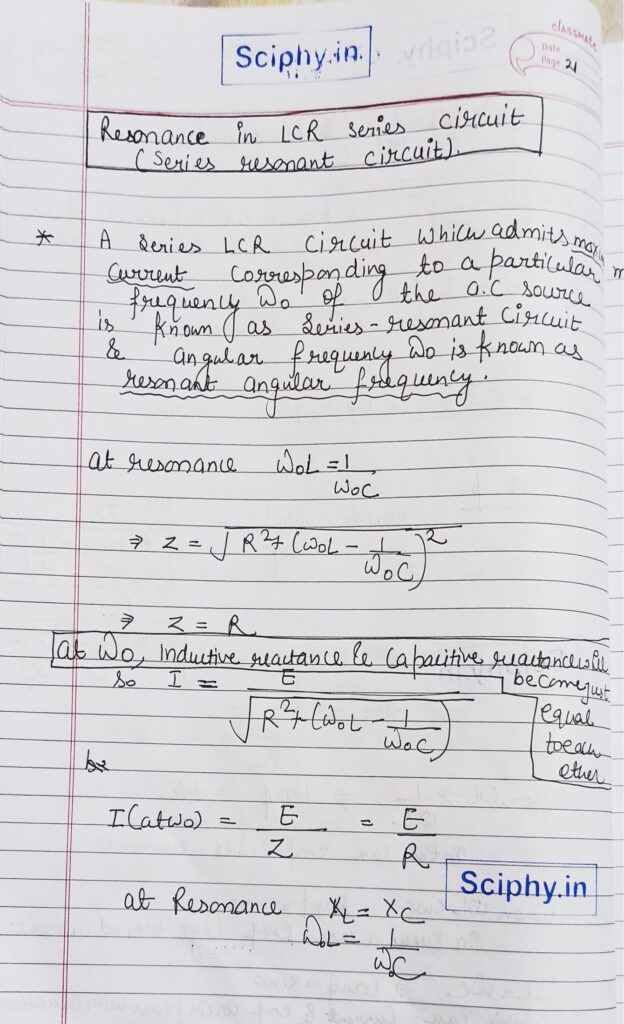 classmate
Date
Page 21
Sciphy.in.
Resonance in LCR series circuit
(Series resonant circuit).
* A series LCR circuit which admits maxim
current corresponding to a particular
frequency ω₀ of the a.c source
is known as series-resonant circuit
& angular frequency ω₀ is known as
resonant angular frequency.
at resonance ω₀L = 1/ω₀C
⇒ Z = √(R² + (ω₀L - 1/ω₀C)²)
⇒ Z = R
at ω₀, inductive reactance & capacitive reactance will
become just
equal
to each
other
so I = E/√(R² + (ω₀L - 1/ω₀C))
I(at ω₀) = E/Z = E/R
Sciphy.in
at Resonance X_L = X_C
ω₀L = 1/ω₀C